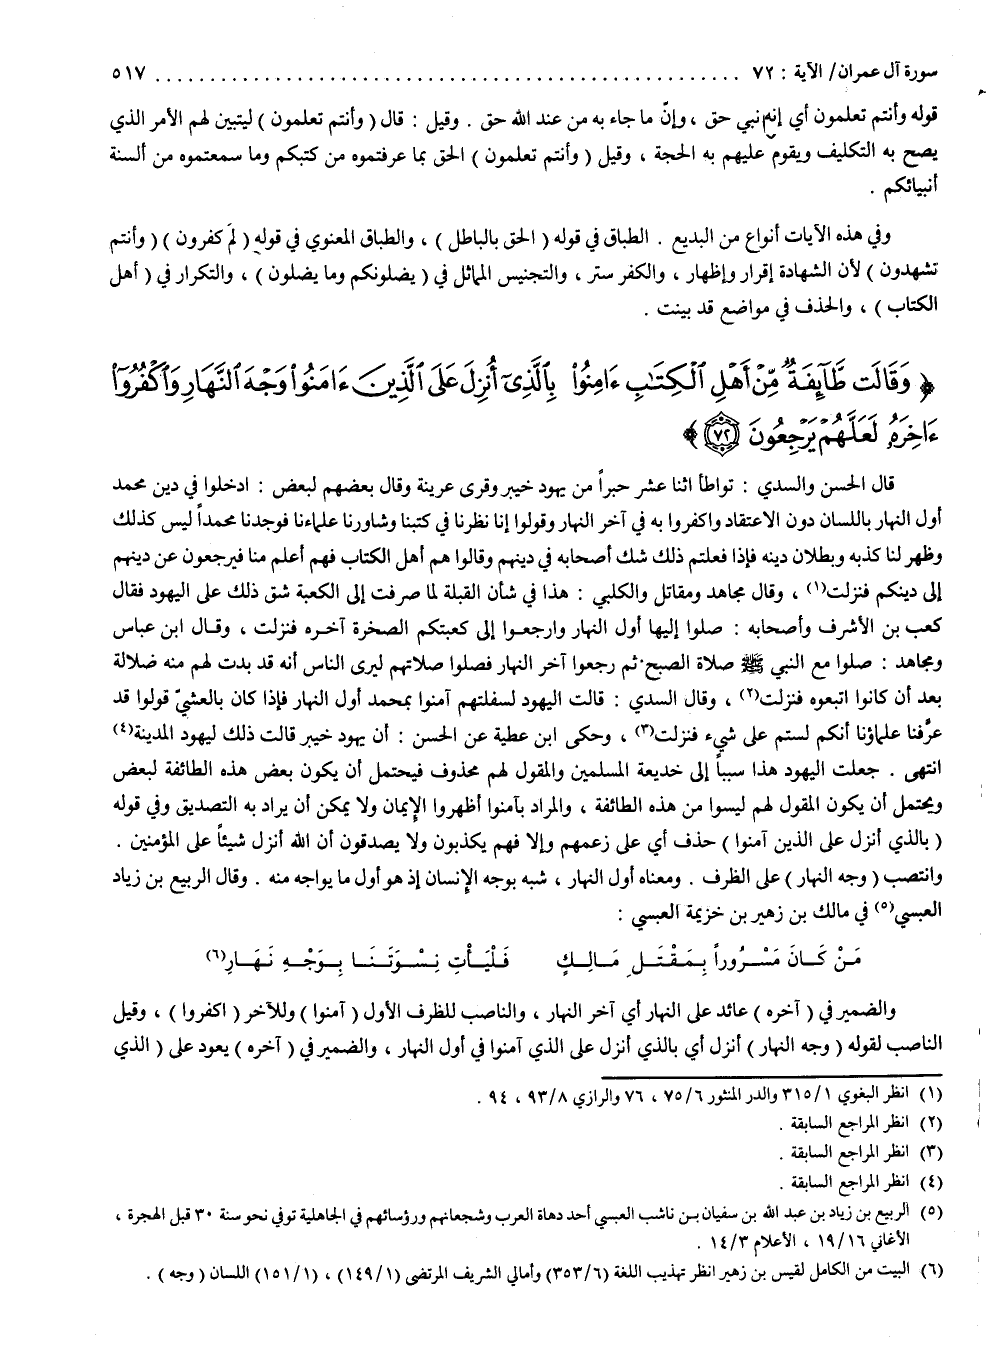 سورة آل عمران/ الآية : ٧٢ ........................................................ ٥١٧
قوله وأنتم تعلمون أي إنه نبي حق ، وإنّ ما جاء به من عند الله حق . وقيل : قال ( وأنتم تعلمون ) ليتبين لهم الأمر الذي
يصح به التكليف ويقوم عليهم به الحجة ، وقيل ( وأنتم تعلمون ) الحق بما عرفتموه من كتبكم وما سمعتموه من ألسنة
أنبيائكم .
وفي هذه الآيات أنواع من البديع . الطباق في قوله ( الحق بالباطل ) ، والطباق المعنوي في قوله ( لم كفرون ) ( وأنتم
تشهدون ) لأن الشهادة إقرار وإظهار ، والكفر ستر ، والتجنيس المماثل في ( يضلونكم وما يضلون ) ، والتكرار في ( أهل
الكتاب ) ، والحذف في مواضع قد بينت .
﴿ وَقَالَت طَّآئِفَةٌ مِّنْ أَهْلِ ٱلْكِتَٰبِ ءَامِنُوا۟ بِٱلَّذِىٓ أُنزِلَ عَلَى ٱلَّذِينَ ءَامَنُوا۟ وَجْهَ ٱلنَّهَارِ وَٱكْفُرُوٓا۟
ءَاخِرَهُۥ لَعَلَّهُمْ يَرْجِعُونَ ٧٢ ﴾
قال الحسن والسدي : تواطأ اثنا عشر حبراً من يهود خيبر وقرى عرينة وقال بعضهم لبعض : ادخلوا في دين محمد
أول النهار باللسان دون الاعتقاد واكفروا به في آخر النهار وقولوا إنا نظرنا في كتبنا وشاورنا علماءنا فوجدنا محمداً ليس كذلك
وظهر لنا كذبه وبطلان دينه فإذا فعلتم ذلك شك أصحابه في دينهم وقالوا هم أهل الكتاب فهم أعلم منا فيرجعون عن دينهم
إلى دينكم فنزلت(١) ، وقال مجاهد ومقاتل والكلبي : هذا في شأن القبلة لما صرفت إلى الكعبة شق ذلك على اليهود فقال
كعب بن الأشرف وأصحابه : صلوا إليها أول النهار وارجعوا إلى كعبتكم الصخرة آخره فنزلت ، وقال ابن عباس
ومجاهد : صلوا مع النبي ﷺ صلاة الصبح ثم رجعوا آخر النهار فصلوا صلاتهم ليرى الناس أنه قد بدت لهم منه ضلالة
بعد أن كانوا اتبعوه فنزلت(٢) ، وقال السدي : قالت اليهود لسفلتهم آمنوا بمحمد أول النهار فإذا كان بالعشيّ قولوا قد
عرَّفنا علماؤنا أنكم لستم على شيء فنزلت(٣) ، وحكى ابن عطية عن الحسن : أن يهود خيبر قالت ذلك ليهود المدينة(٤)
انتهى . جعلت اليهود هذا سبباً إلى خديعة المسلمين والمقول لهم محذوف فيحتمل أن يكون بعض هذه الطائفة لبعض
ويحتمل أن يكون المقول لهم ليسوا من هذه الطائفة ، والمراد بآمنوا أظهروا الإيمان ولا يمكن أن يراد به التصديق وفي قوله
( بالذي أنزل على الذين آمنوا ) حذف أي على زعمهم وإلا فهم يكذبون ولا يصدقون أن الله أنزل شيئاً على المؤمنين .
وانتصب ( وجه النهار ) على الظرف . ومعناه أول النهار ، شبه بوجه الإنسان إذ هو أول ما يواجه منه . وقال الربيع بن زياد
العبسي(٥) في مالك بن زهير بن خزيمة العبسي :
مَنْ كَانَ مَسْرُوراً بِمَقْتَلِ مَالِكٍ فَلْيَأْتِ نِسْوَتَنَا بِوَجْهِ نَهَارِ(٦)
والضمير في ( آخره ) عائد على النهار أي آخر النهار ، والناصب للظرف الأول ( آمنوا ) وللآخر ( اكفروا ) ، وقيل
الناصب لقوله ( وجه النهار ) أنزل أي بالذي أنزل على الذي آمنوا في أول النهار ، والضمير في ( آخره ) يعود على ( الذي
(١) انظر البغوي ٣١٥/١ والدر المنثور ٧٥/٦ ، ٧٦ والرازي ٩٣/٨ ، ٩٤ .
(٢) انظر المراجع السابقة .
(٣) انظر المراجع السابقة .
(٤) انظر المراجع السابقة .
(٥) الربيع بن زياد بن عبد الله بن سفيان بن ناشب العبسي أحد دهاة العرب وشجعانهم ورؤسائهم في الجاهلية توفي نحو سنة ٣٠ قبل الهجرة ،
الأغاني ١٩/١٦ ، الأعلام ١٤/٣ .
(٦) البيت من الكامل لقيس بن زهير انظر تهذيب اللغة (٣٥٣/٦) وأمالي الشريف المرتضى (١٤٩/١) ، (١٥١/١) اللسان ( وجه ) .